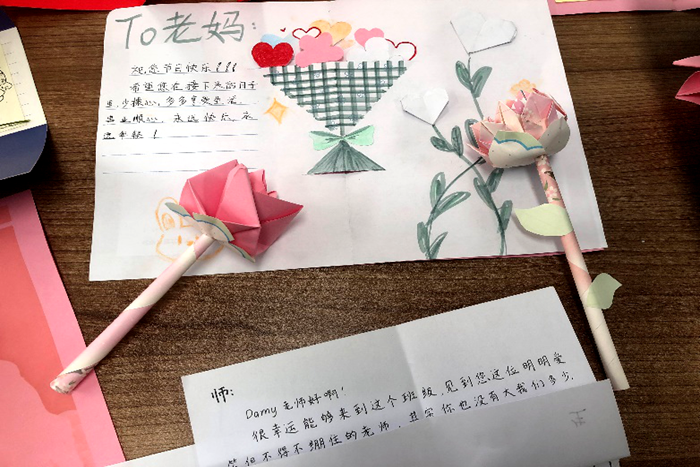 To老妈:
祝您节日快乐!!!
希望您在接下来的日子
里,少操心,多多享受生活,
事业顺心,永远快乐,永
远年轻!
师:
Damy老师好啊!
很幸运能够来到这个班级,见到您这位明明爱
笑但不得不绷住的老师,其实你也没有大我们多少,